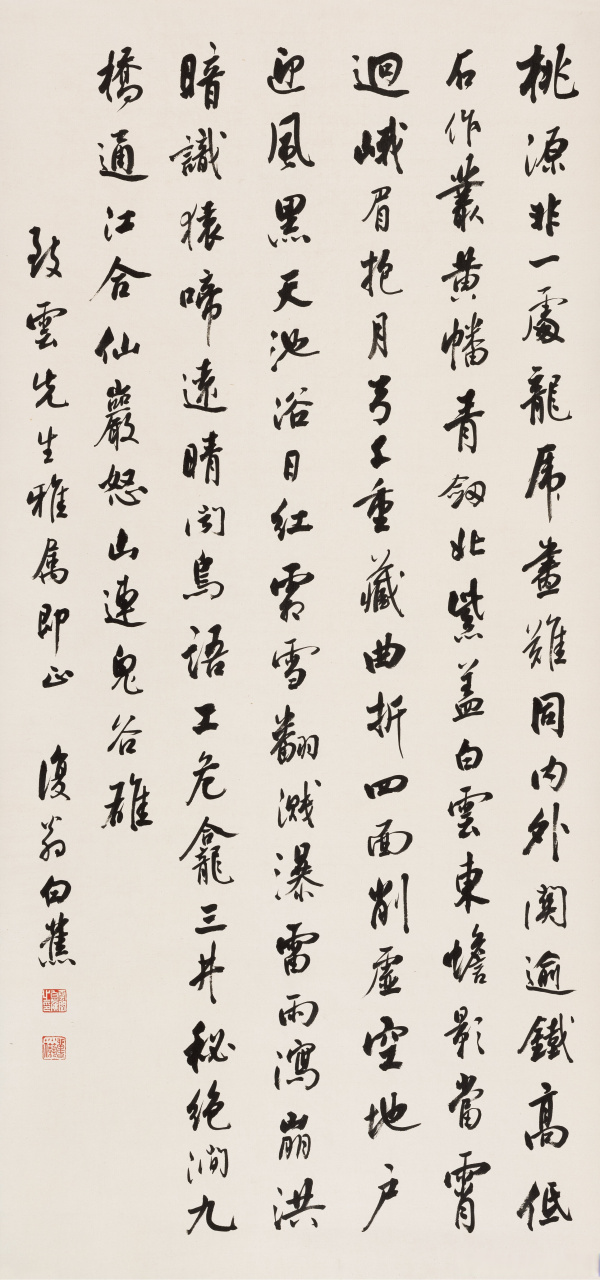 桃源非一處龍虎畫難同內外関逾鐵高低
石作叢黃幡青劔北紫蓋白雲東蟾影當霄
迴峨眉抱月弓千重藏曲折四面削虛空地戶
迎風黑天池浴日紅霜雪翻濺瀑雷雨瀉崩洪
暗識猿啼遠晴聞鳥語工危龕三井秘絕澗九
橋通江合仙巖怒山連鬼谷雄
致雲先生雅属即正 復翁白蕉